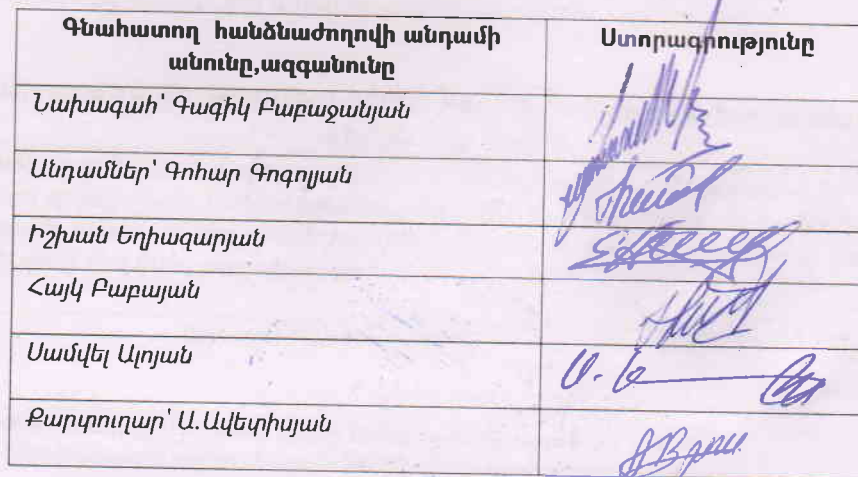 Գնահատող հանձնաժողովի անդամի
անունը,ազգանունը
Ստորագրությունը
Նախագահ՝ Գագիկ Բաբաջանյան
Անդամներ՝ Գոհար Գոգոլյան
Իշխան Եղիազարյան
Հայկ Բաբայան
Սամվել Ալոյան
Քարտուղար՝ Ա.Ավետիսյան